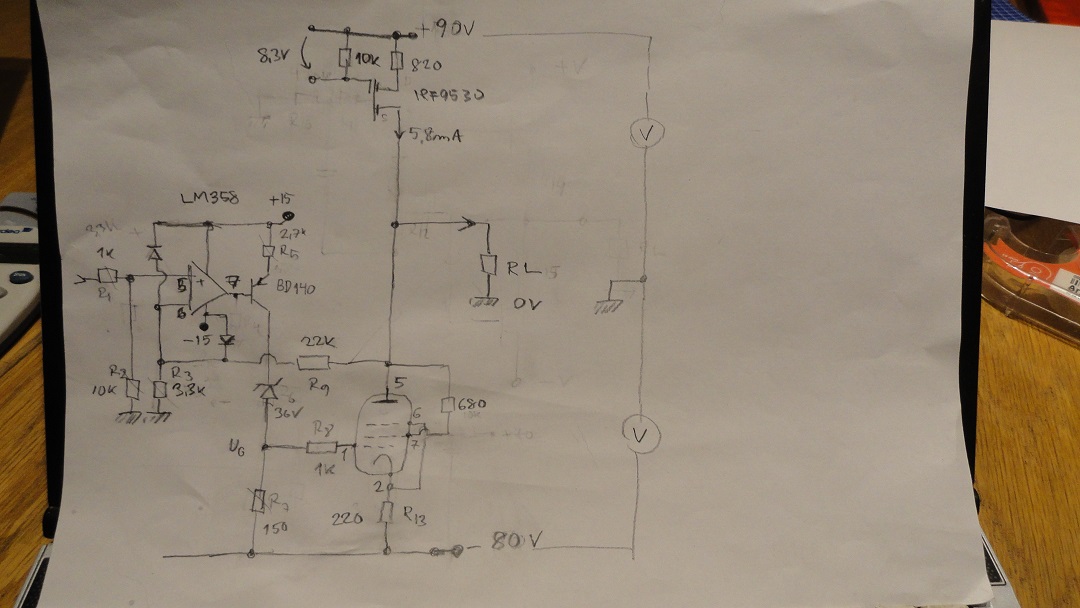 +90V
8,3V
10K
820
IRF9530
5,8mA
V
LM358
+15
2,7K
R5
1K
R1
5
+
7
BD140
6
-15
RL
0V
22K
R9
R2
10K
R3
3,3K
36V
5
680
6
7
UG
R8
1K
1
2
V
R7
150
220
R13
80V